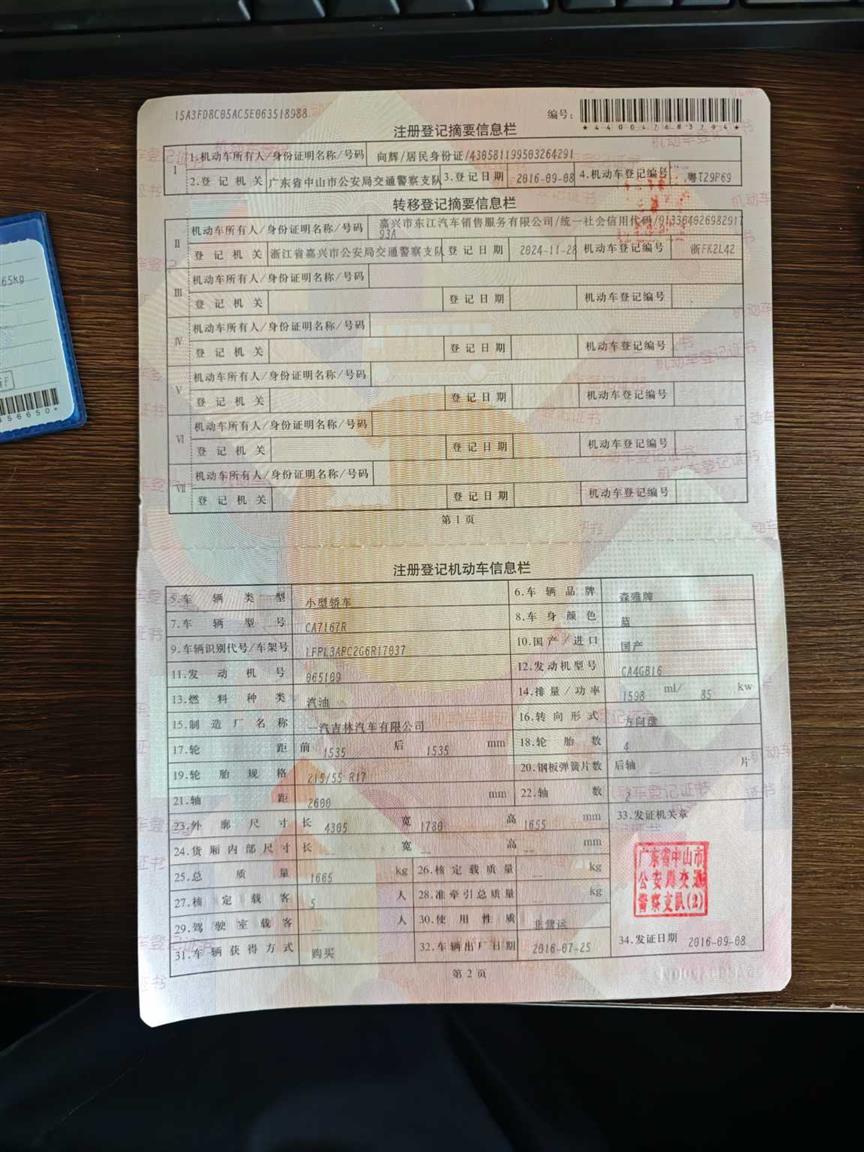 15A3FD8C05AC5E063518988
编号:
*440047683794*
注册登记摘要信息栏
I 1.机动车所有人/身份证明名称/号码 向辉/居民身份证/430581199503264291
2.登记机关 广东省中山市公安局交通警察支队 3.登记日期 2016-09-08 4.机动车登记编号 粤T29P69
转移登记摘要信息栏
II 机动车所有人/身份证明名称/号码 嘉兴市东江汽车销售服务有限公司/统一社会信用代码/913304026982917
93A
登记机关 浙江省嘉兴市公安局交通警察支队 登记日期 2024-11-28 机动车登记编号 浙FK2L42
III 机动车所有人/身份证明名称/号码
登记机关 登记日期 机动车登记编号
IV 机动车所有人/身份证明名称/号码
登记机关 登记日期 机动车登记编号
V 机动车所有人/身份证明名称/号码
登记机关 登记日期 机动车登记编号
VI 机动车所有人/身份证明名称/号码
登记机关 登记日期 机动车登记编号
VII 机动车所有人/身份证明名称/号码
登记机关 登记日期 机动车登记编号
第1页
注册登记机动车信息栏
5.车辆类型 小型轿车 6.车辆品牌 森雅牌
7.车辆型号 CA7167R 8.车身颜色 蓝
9.车辆识别代号/车架号 LFPL3APC2G6R17037 10.国产/进口 国产
11.发动机号 065109 12.发动机型号 CA4GB16
13.燃料种类 汽油 14.排量/功率 1598 ml/ 85 kw
15.制造厂名称 一汽吉林汽车有限公司 16.转向形式 方向盘
17.轮距 前 1535 后 1535 mm 18.轮胎数 4
19.轮胎规格 215/55 R17 20.钢板弹簧片数 后轴 __ 片
21.轴距 2600 mm 22.轴数 2
23.外廓尺寸 长 4305 宽 1780 高 1655 mm 33.发证机关章
24.货厢内部尺寸 长 __ 宽 __ 高 __ mm
25.总质量 1665 kg 26.核定载质量 __ kg
27.核定载客 5 人 28.准牵引总质量 __ kg
29.驾驶室载客 __ 人 30.使用性质 非营运
31.车辆获得方式 购买 32.车辆出厂日期 2016-07-25
广东省中山市
公安局交通
警察支队(2)
34.发证日期 2016-09-08
第2页
65kg
56650*